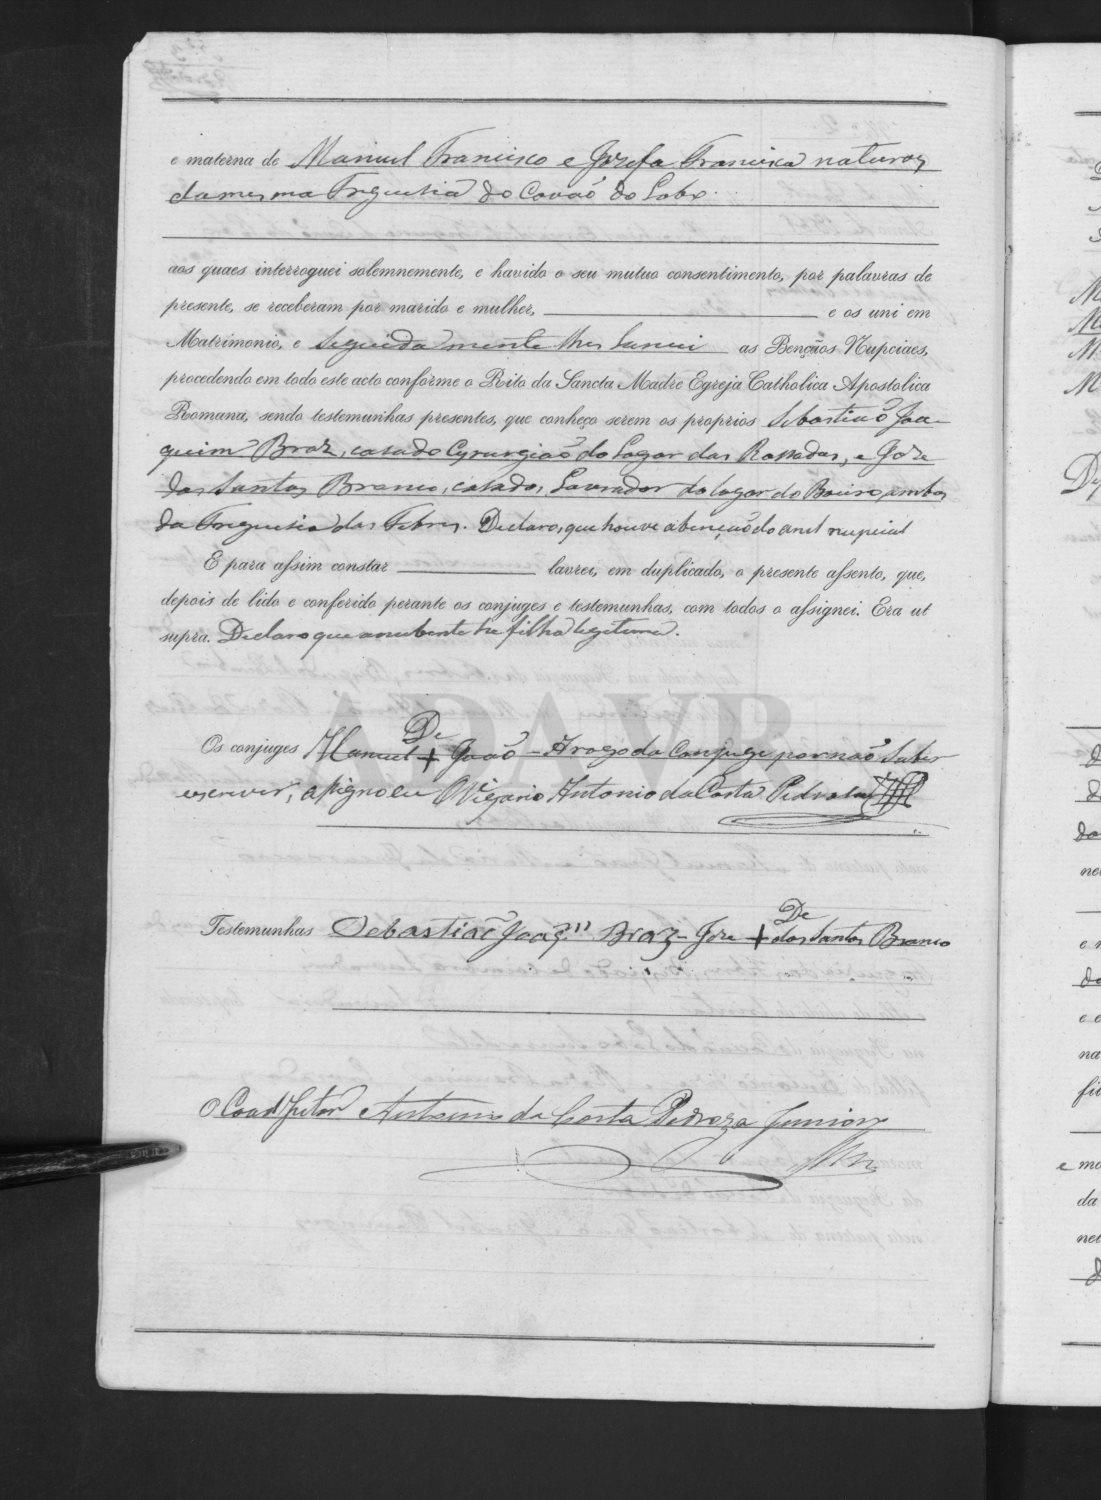 e materna de Manuel Francisco e Jozefa Francisca naturaes
da mesma Freguesia do Covão do Lobo.
aos quaes interroguei solemnemente, e havido o seu mutuo consentimento, por palavras de
presente, se receberam por marido e mulher, e os uni em
Matrimonio, e seguidamente lhes lancei as Bençãos Nupciaes,
procedendo em todo este acto conforme o Rito da Sancta Madre Egreja Catholica Apostolica
Romana, sendo testemunhas presentes, que conheço serem os proprios Sebastião Joa-
quim Braz, casado Cyrurgião do Logar das Rossadas, e Józe
dos Santos Branco, casado, Lavrador do logar do ambos
da Freguesia das Febres. Declaro, que houve a benção do anel nupcial
E para assim constar lavrei, em duplicado, o presente assento, que,
depois de lido e conferido perante os conjuges e testemunhas, com todos o assignei. Era ut
supra. Declaro que a nubente he filha legitima.
ADAVR
De
Os conjuges Manuel + João - A rogo da Conjuge por não saber
escrever, assigno eu Vigario Antonio da Costa Pedroza
De
Testemunhas Sebastião Joaq.m Braz - Joze + dos Santos Branco
O Coadjutor Antonio da Costa Pedroza Junior